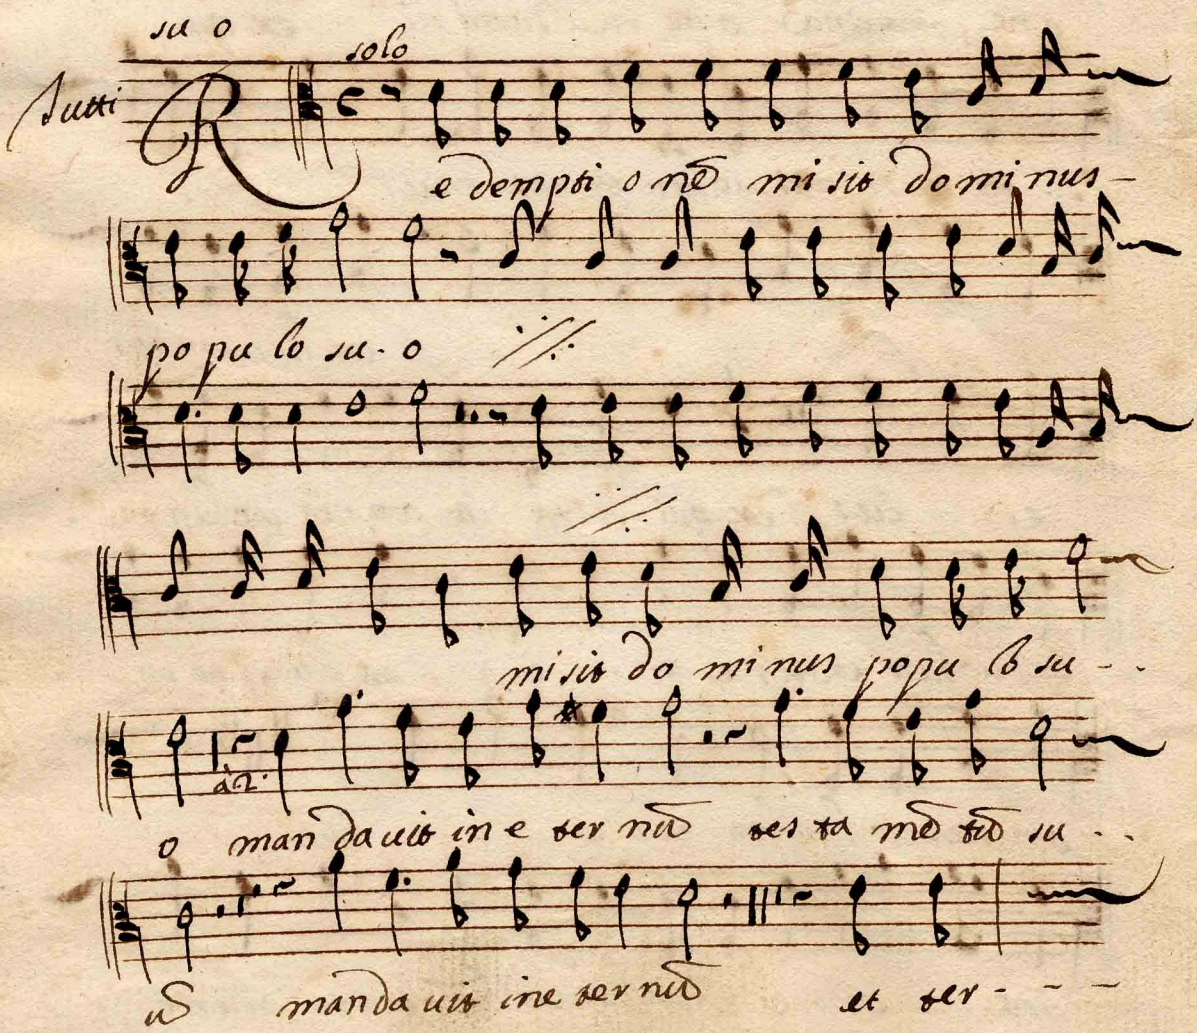 su o
solo
Tutti
R
e dempti o nē mi sit do mi nus -
po pu lo su - o
mi sit do mi nus popu lo su - -
a2.
o man da uit in e ter nū tes ta mē tū su - -
ū man da uit in e ter nū et ter - - -